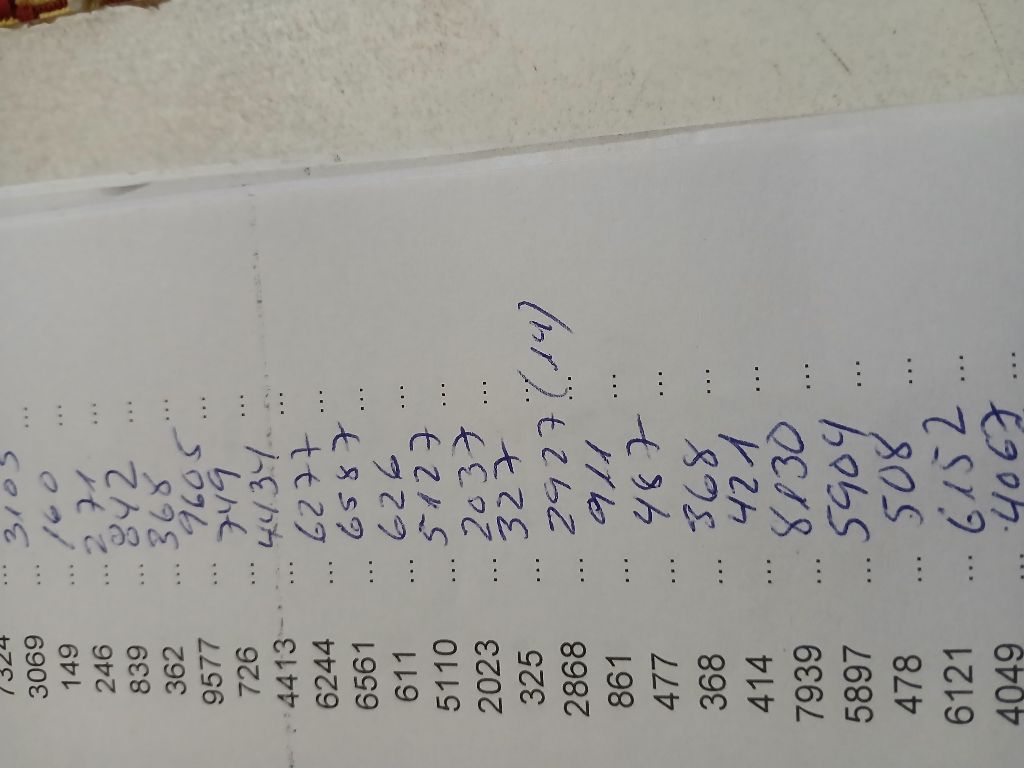 7324 ...
3069 ... 3103 ...
149 ... 160 ...
246 ... 271 ...
839 ... 842 ...
362 ... 368 ...
9577 ... 9605 ...
726 ... 749 ...
4413 ... 4434 ...
6244 ... 6277 ...
6561 ... 6587 ...
611 ... 626 ...
5110 ... 5127 ...
2023 ... 2037 ...
325 ... 327 ...
2868 ... 2927 (14) ...
861 ... 911 ...
477 ... 487 ...
368 ... 368 ...
414 ... 421 ...
7939 ... 8130 ...
5897 ... 5904 ...
478 ... 508 ...
6121 ... 6152 ...
4049 ... 4067 ...